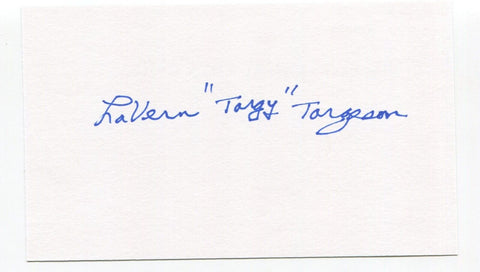 LaVern "Torgy" Torgeson